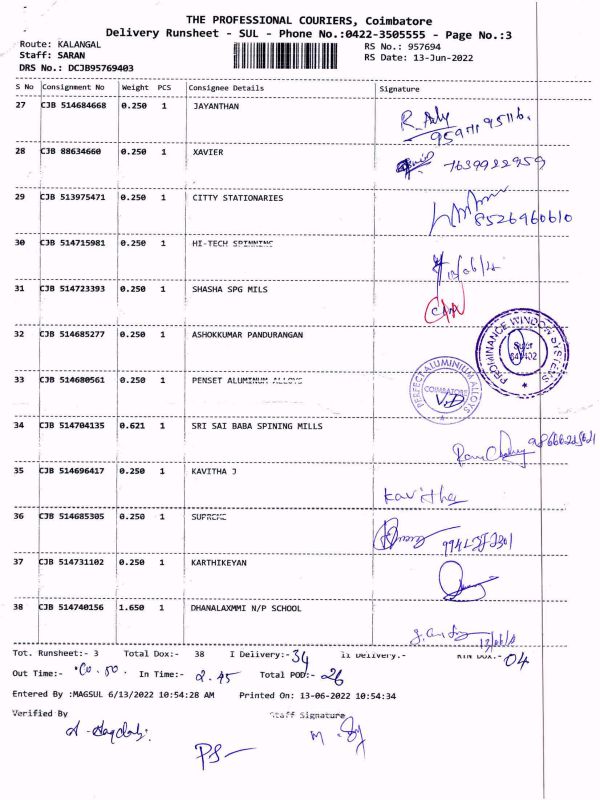 THE PROFESSIONAL COURIERS, Coimbatore
Delivery Runsheet - SUL - Phone No.:0422-3505555 - Page No.:3
Route: KALANGAL RS No.: 957694
Staff: SARAN RS Date: 13-Jun-2022
DRS No.: DCJB95769403
S No Consignment No Weight PCS Consignee Details Signature
27 CJB 514684668 0.250 1 JAYANTHAN
28 CJB 88634660 0.250 1 XAVIER 7639922959
29 CJB 513975471 0.250 1 CITTY STATIONARIES 8526960610
30 CJB 514715981 0.250 1 HI-TECH SPINNING 13/06/22
31 CJB 514723393 0.250 1 SHASHA SPG MILS
32 CJB 514685277 0.250 1 ASHOKKUMAR PANDURANGAN
PROMINANCE WINDOW SYSTEMS Sulur 641402
33 CJB 514680561 0.250 1 PENSET ALUMINUM ALLOYS
PERFECT ALUMINIUM ALLOYS COIMBATORE
34 CJB 514704135 0.621 1 SRI SAI BABA SPINING MILLS
35 CJB 514696417 0.250 1 KAVITHA J Kavitha
36 CJB 514685305 0.250 1 SUPREME
37 CJB 514731102 0.250 1 KARTHIKEYAN
38 CJB 514740156 1.650 1 DHANALAXMMI N/P SCHOOL
Tot. Runsheet:- 3 Total Dox:- 38 I Delivery:- 34 II Delivery.- RTN Dox.- 04
Out Time:- In Time:- 2.45 Total POD:- 26
Entered By :MAGSUL 6/13/2022 10:54:28 AM Printed On: 13-06-2022 10:54:34
Verified By Staff Signature